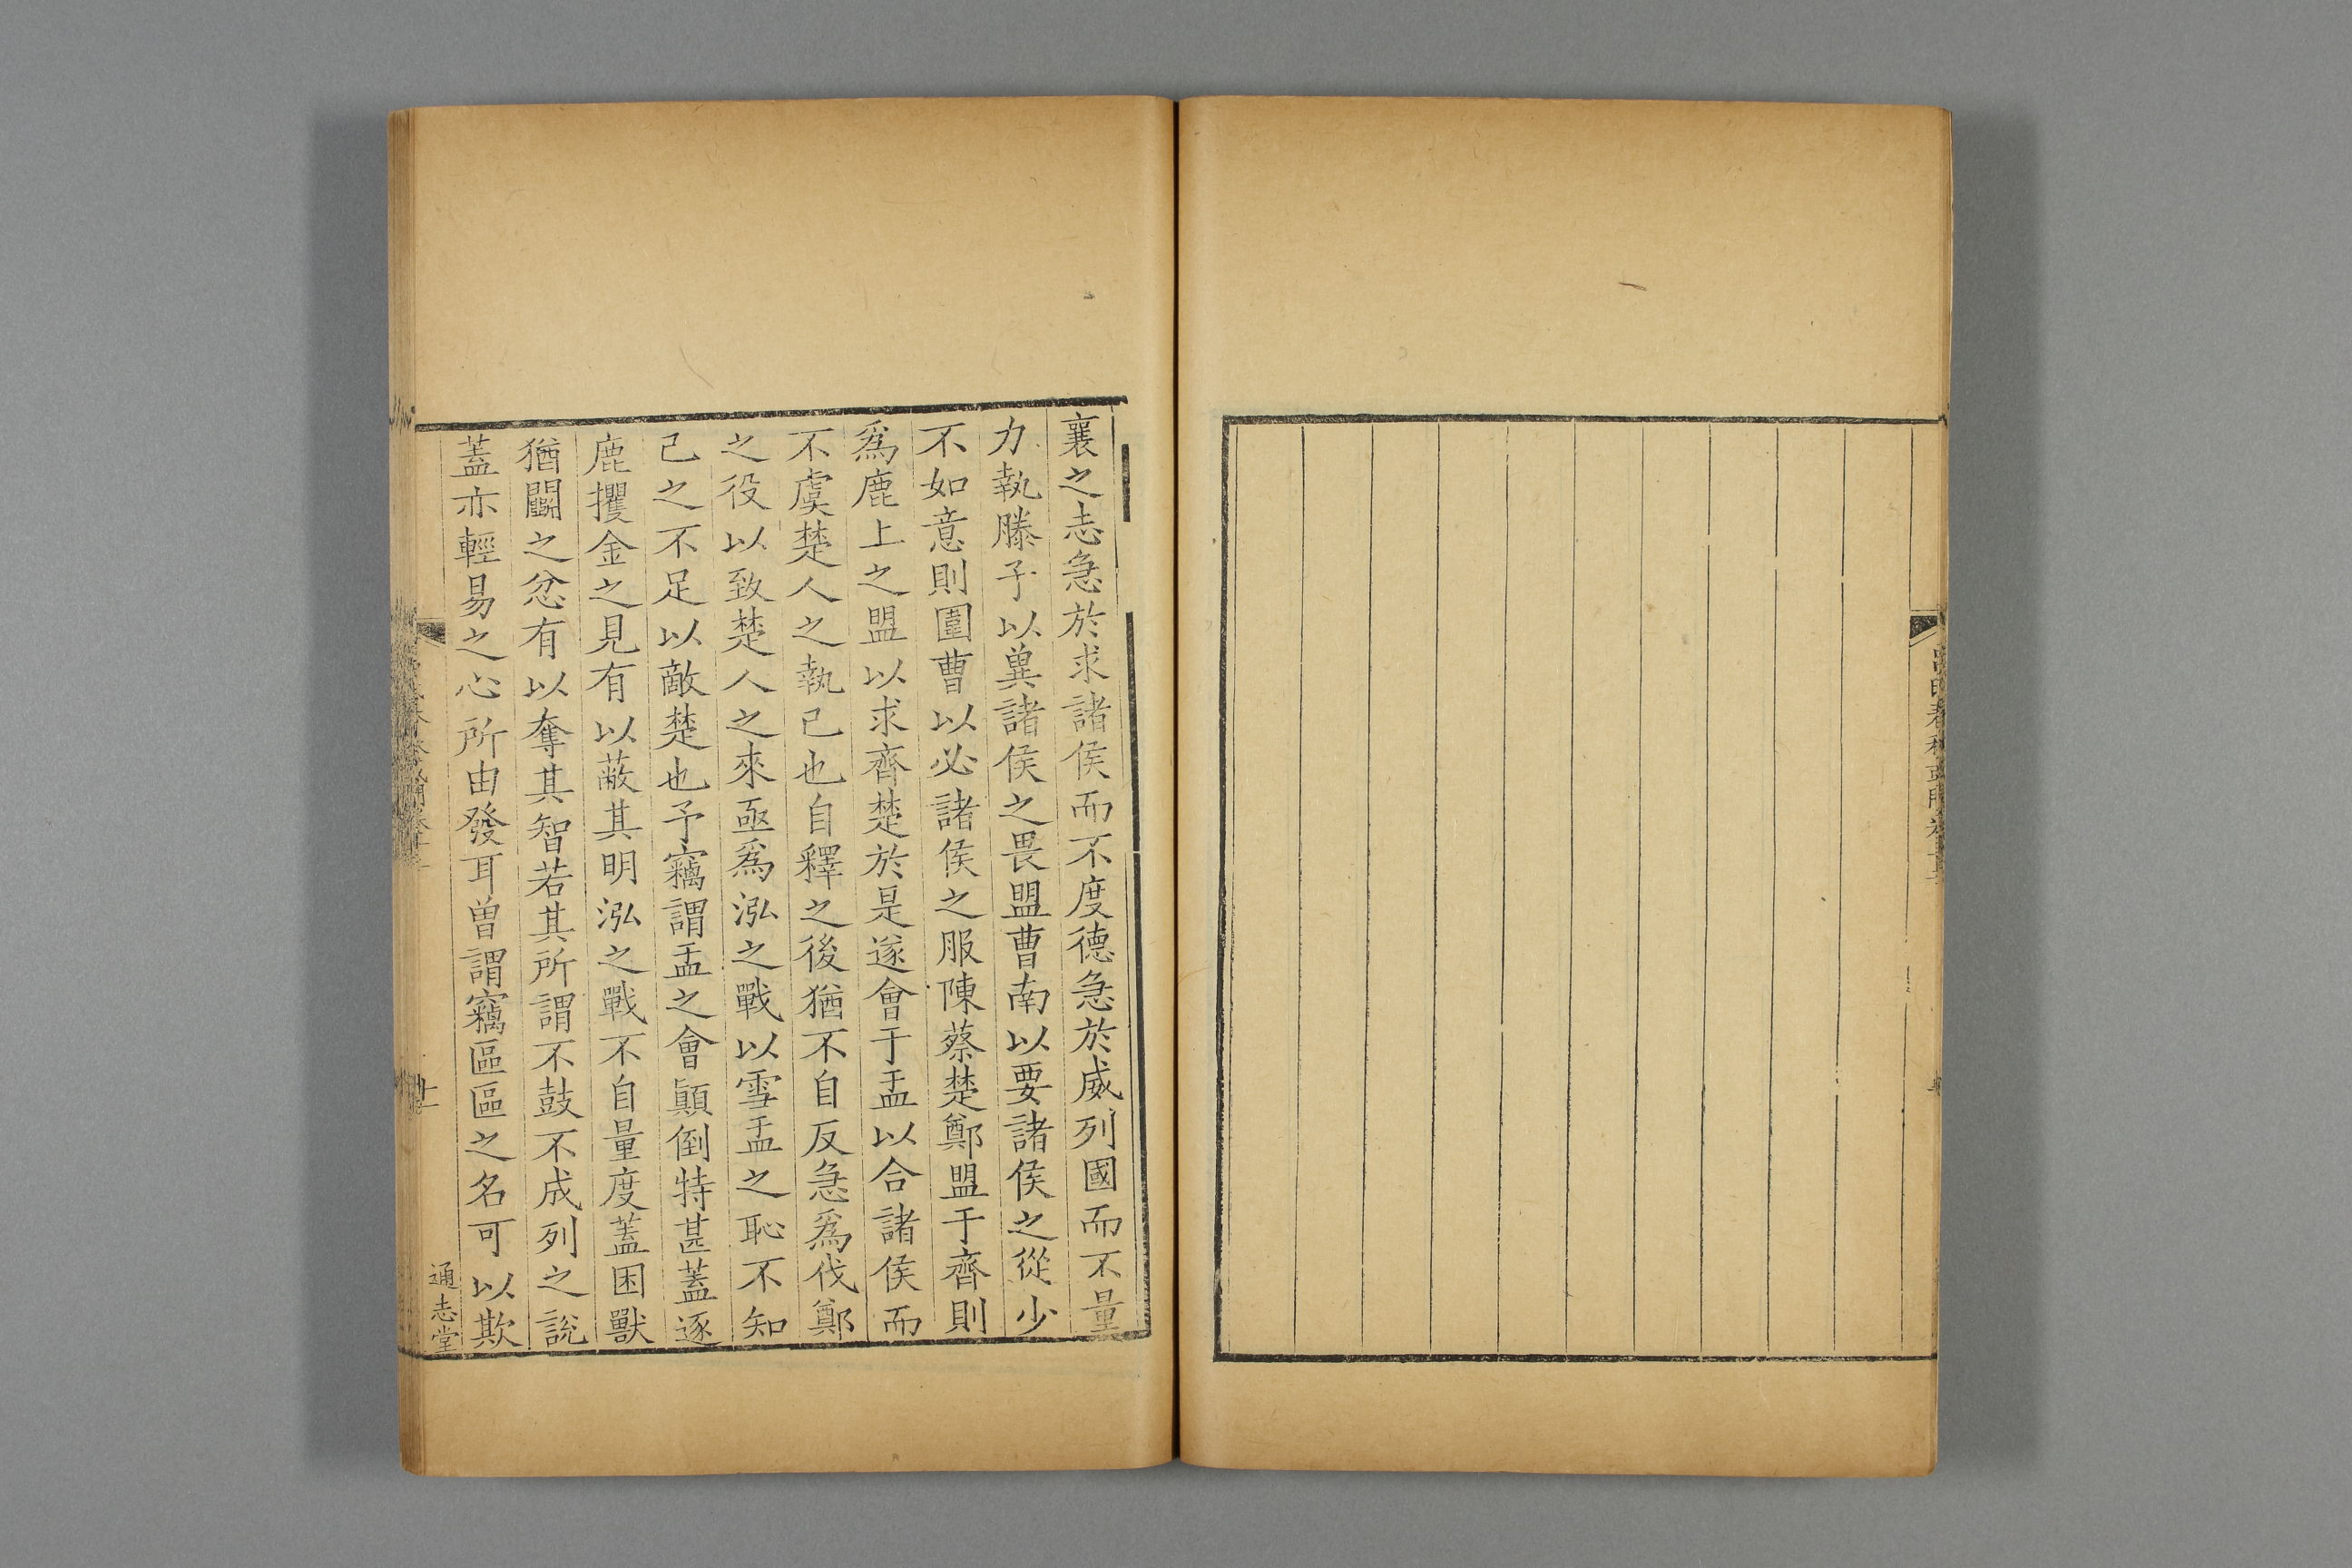 襄之志急於求諸侯而不度德急於威列國而不量
力執滕子以兾諸侯之畏盟曹南以要諸侯之從少
不如意則圍曹以必諸侯之服陳蔡楚鄭盟于齊則
爲鹿上之盟以求齊楚於是遂會于盂以合諸侯而
不虞楚人之執己也自釋之後猶不自反急爲伐鄭
之役以致楚人之來亟爲泓之戰以雪盂之恥不知
己之不足以敵楚也予竊謂盂之會顚倒特甚蓋逐
鹿攫金之見有以蔽其明泓之戰不自量度蓋困獸
猶鬭之忿有以奪其智若其所謂不鼓不成列之說
蓋亦輕易之心所由發耳曽謂竊區區之名可以欺
通志堂